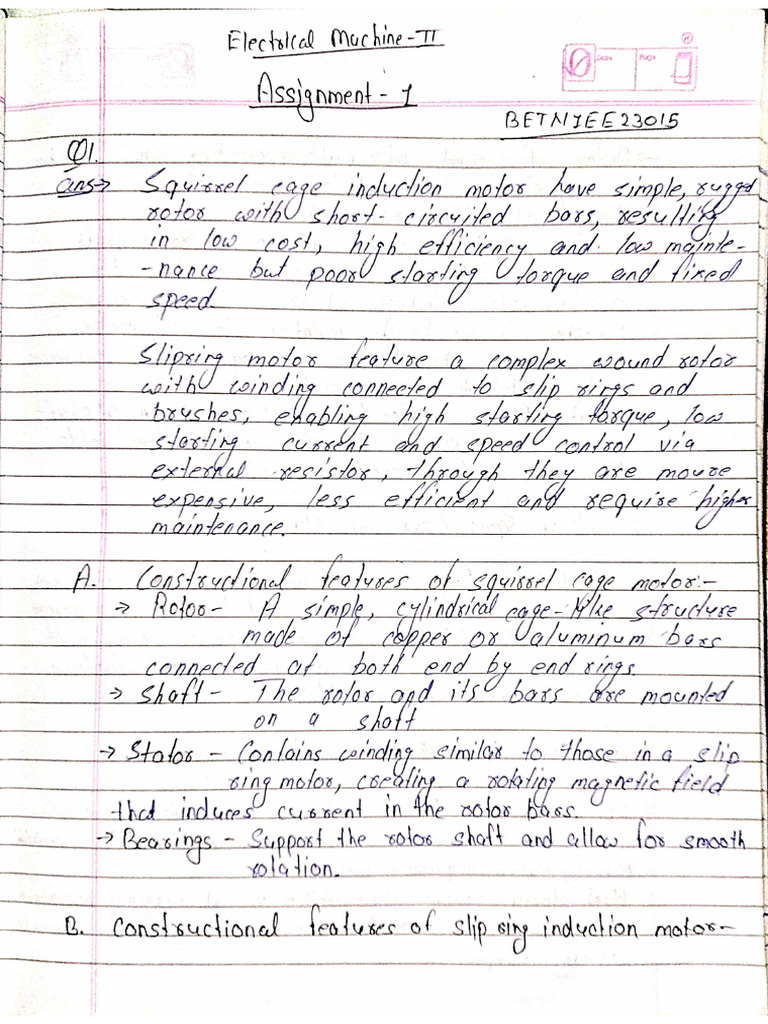 Electrical Machine-II
Assignment - 1
BETN1EE23015
Q1.
ans→ Squirrel cage induction motor have simple, rugged
rotor with short-circuited bars, resulting
in low cost, high efficiency and low mainte-
-nance but poor starting torque and fixed
speed.
Slipring motor feature a complex wound rotor
with winding connected to slip rings and
brushes, enabling high starting torque, low
starting current and speed control via
external resistor, through they are moure
expensive, less efficient and require higher
maintenance.
A. Constructional features of squirrel cage motor:-
→ Rotor- A simple, cylindrical cage-like structure
made of copper or aluminum bars
connected at both end by end rings.
→ Shaft- The rotor and its bars are mounted
on a shaft
→ Stator - Contains winding similar to those in a slip
ring motor, creating a rotating magnetic field
that induces current in the rotor bars.
→ Bearings - Support the rotor shaft and allow for smooth
rotation.
B. Constructional features of slip ring induction motor-